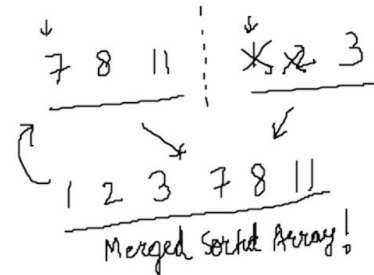 7 8 11 1 2 3
1 2 3 7 8 11
Merged Sorted Array!